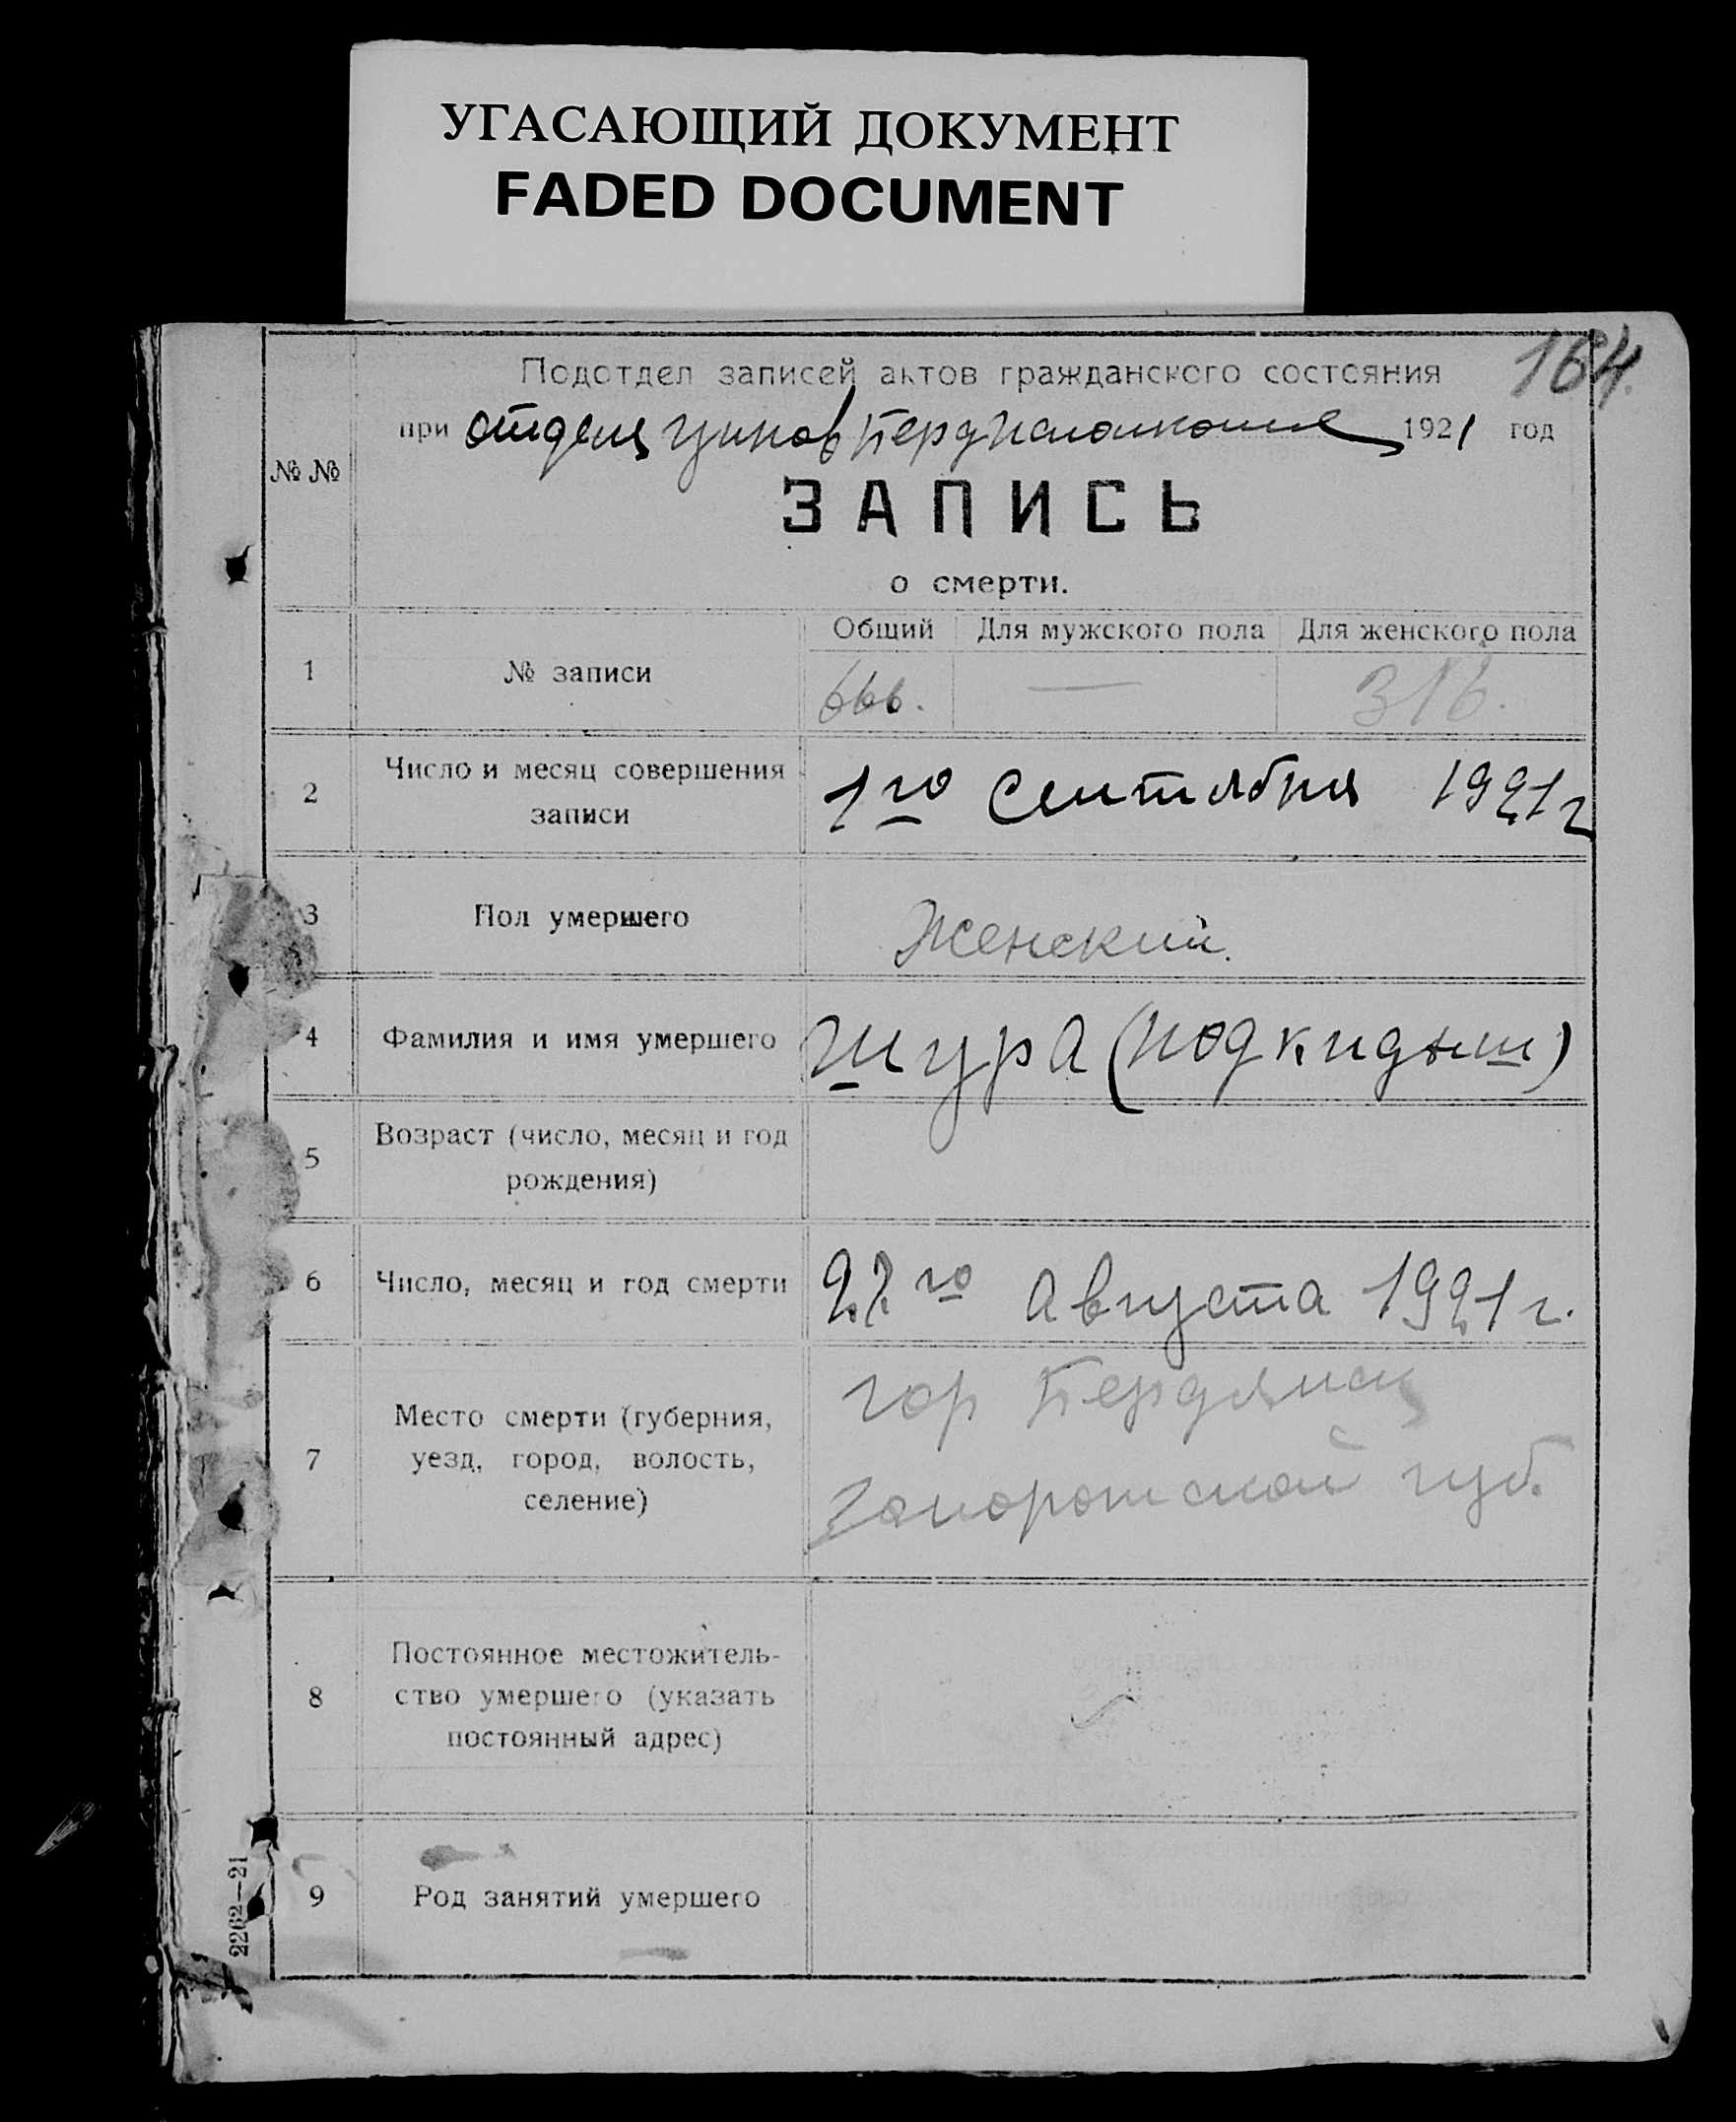 УГАСАЮЩИЙ ДОКУМЕНТ
FADED DOCUMENT
164.
Подотдел записей актов гражданского состояния
при отдела 1921 год
№ №
ЗАПИСЬ
о смерти.
Общий Для мужского пола Для женского пола
1 № записи 666. — 316.
2 Число и месяц совершения
записи
1го Сентября 1921 г
3 Пол умершего Женский.
4 Фамилия и имя умершего Шура (подкидыш)
5 Возраст (число, месяц и год
рождения)
6 Число, месяц и год смерти 27го Августа 1921 г.
7 Место смерти (губерния,
уезд, город, волость,
селение)
гор Бердянск
Запорожской губ.
8 Постоянное местожитель-
ство умершего (указать
постоянный адрес)
9 Род занятий умершего
2262—21